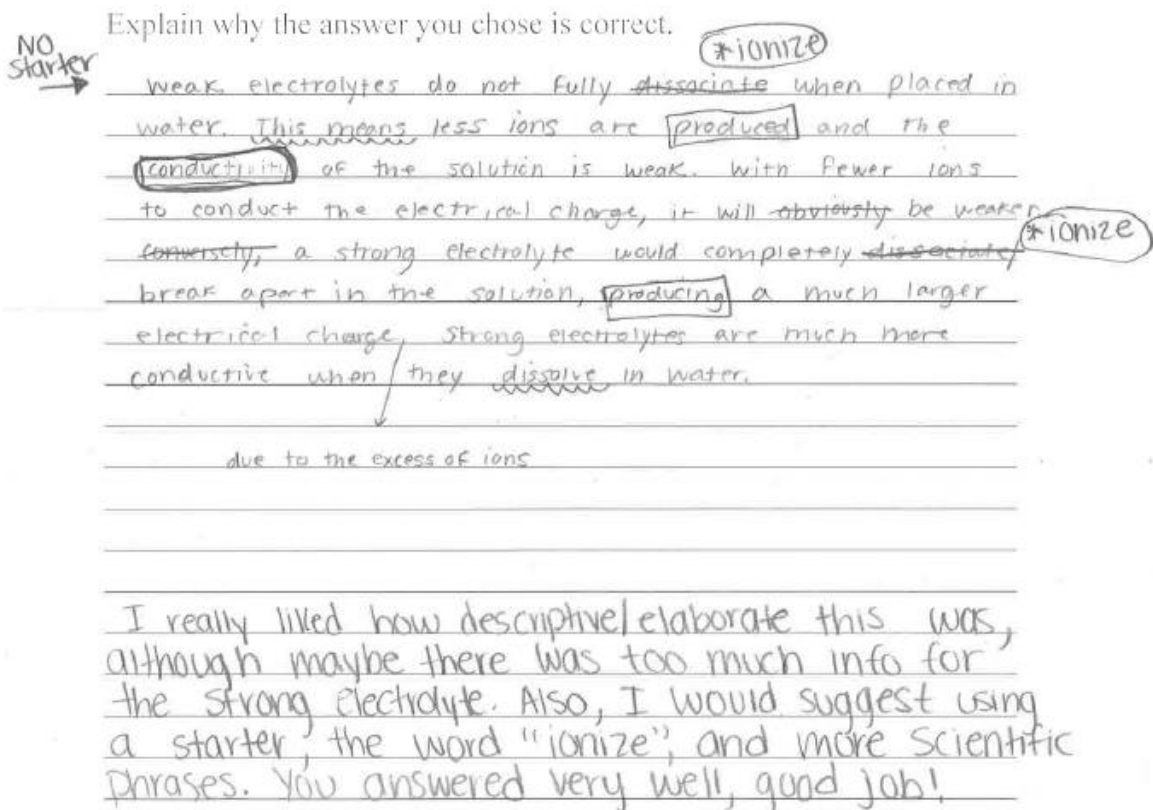 Explain why the answer you chose is correct.
NO starter
*ionize
weak electrolytes do not fully dissociate when placed in
water. This means less ions are produced and the
conductivity of the solution is weak. With fewer ions
to conduct the electrical charge, it will obviously be weaker.
*ionize
conversely, a strong electrolyte would completely dissociate/
break apart in the solution, producing a much larger
electrical charge, strong electrolytes are much more
conductive when they dissolve in water.
due to the excess of ions
I really liked how descriptive/elaborate this was,
although maybe there was too much info for
the strong electrolyte. Also, I would suggest using
a starter, the word "ionize", and more scientific
phrases. You answered very well, good job!